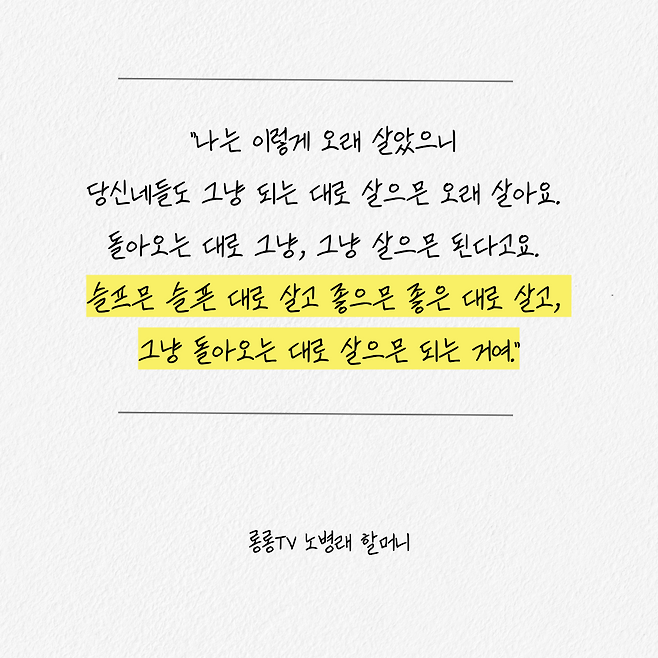 "나는 이렇게 오래 살았으니
당신네들도 그냥 되는 대로 살으믄 오래 살아요.
돌아오는 대로 그냥, 그냥 살으믄 된다고요.
슬프믄 슬픈 대로 살고 좋으믄 좋은 대로 살고,
그냥 돌아오는 대로 살으믄 되는 거여."
롱롱TV 노병래 할머니